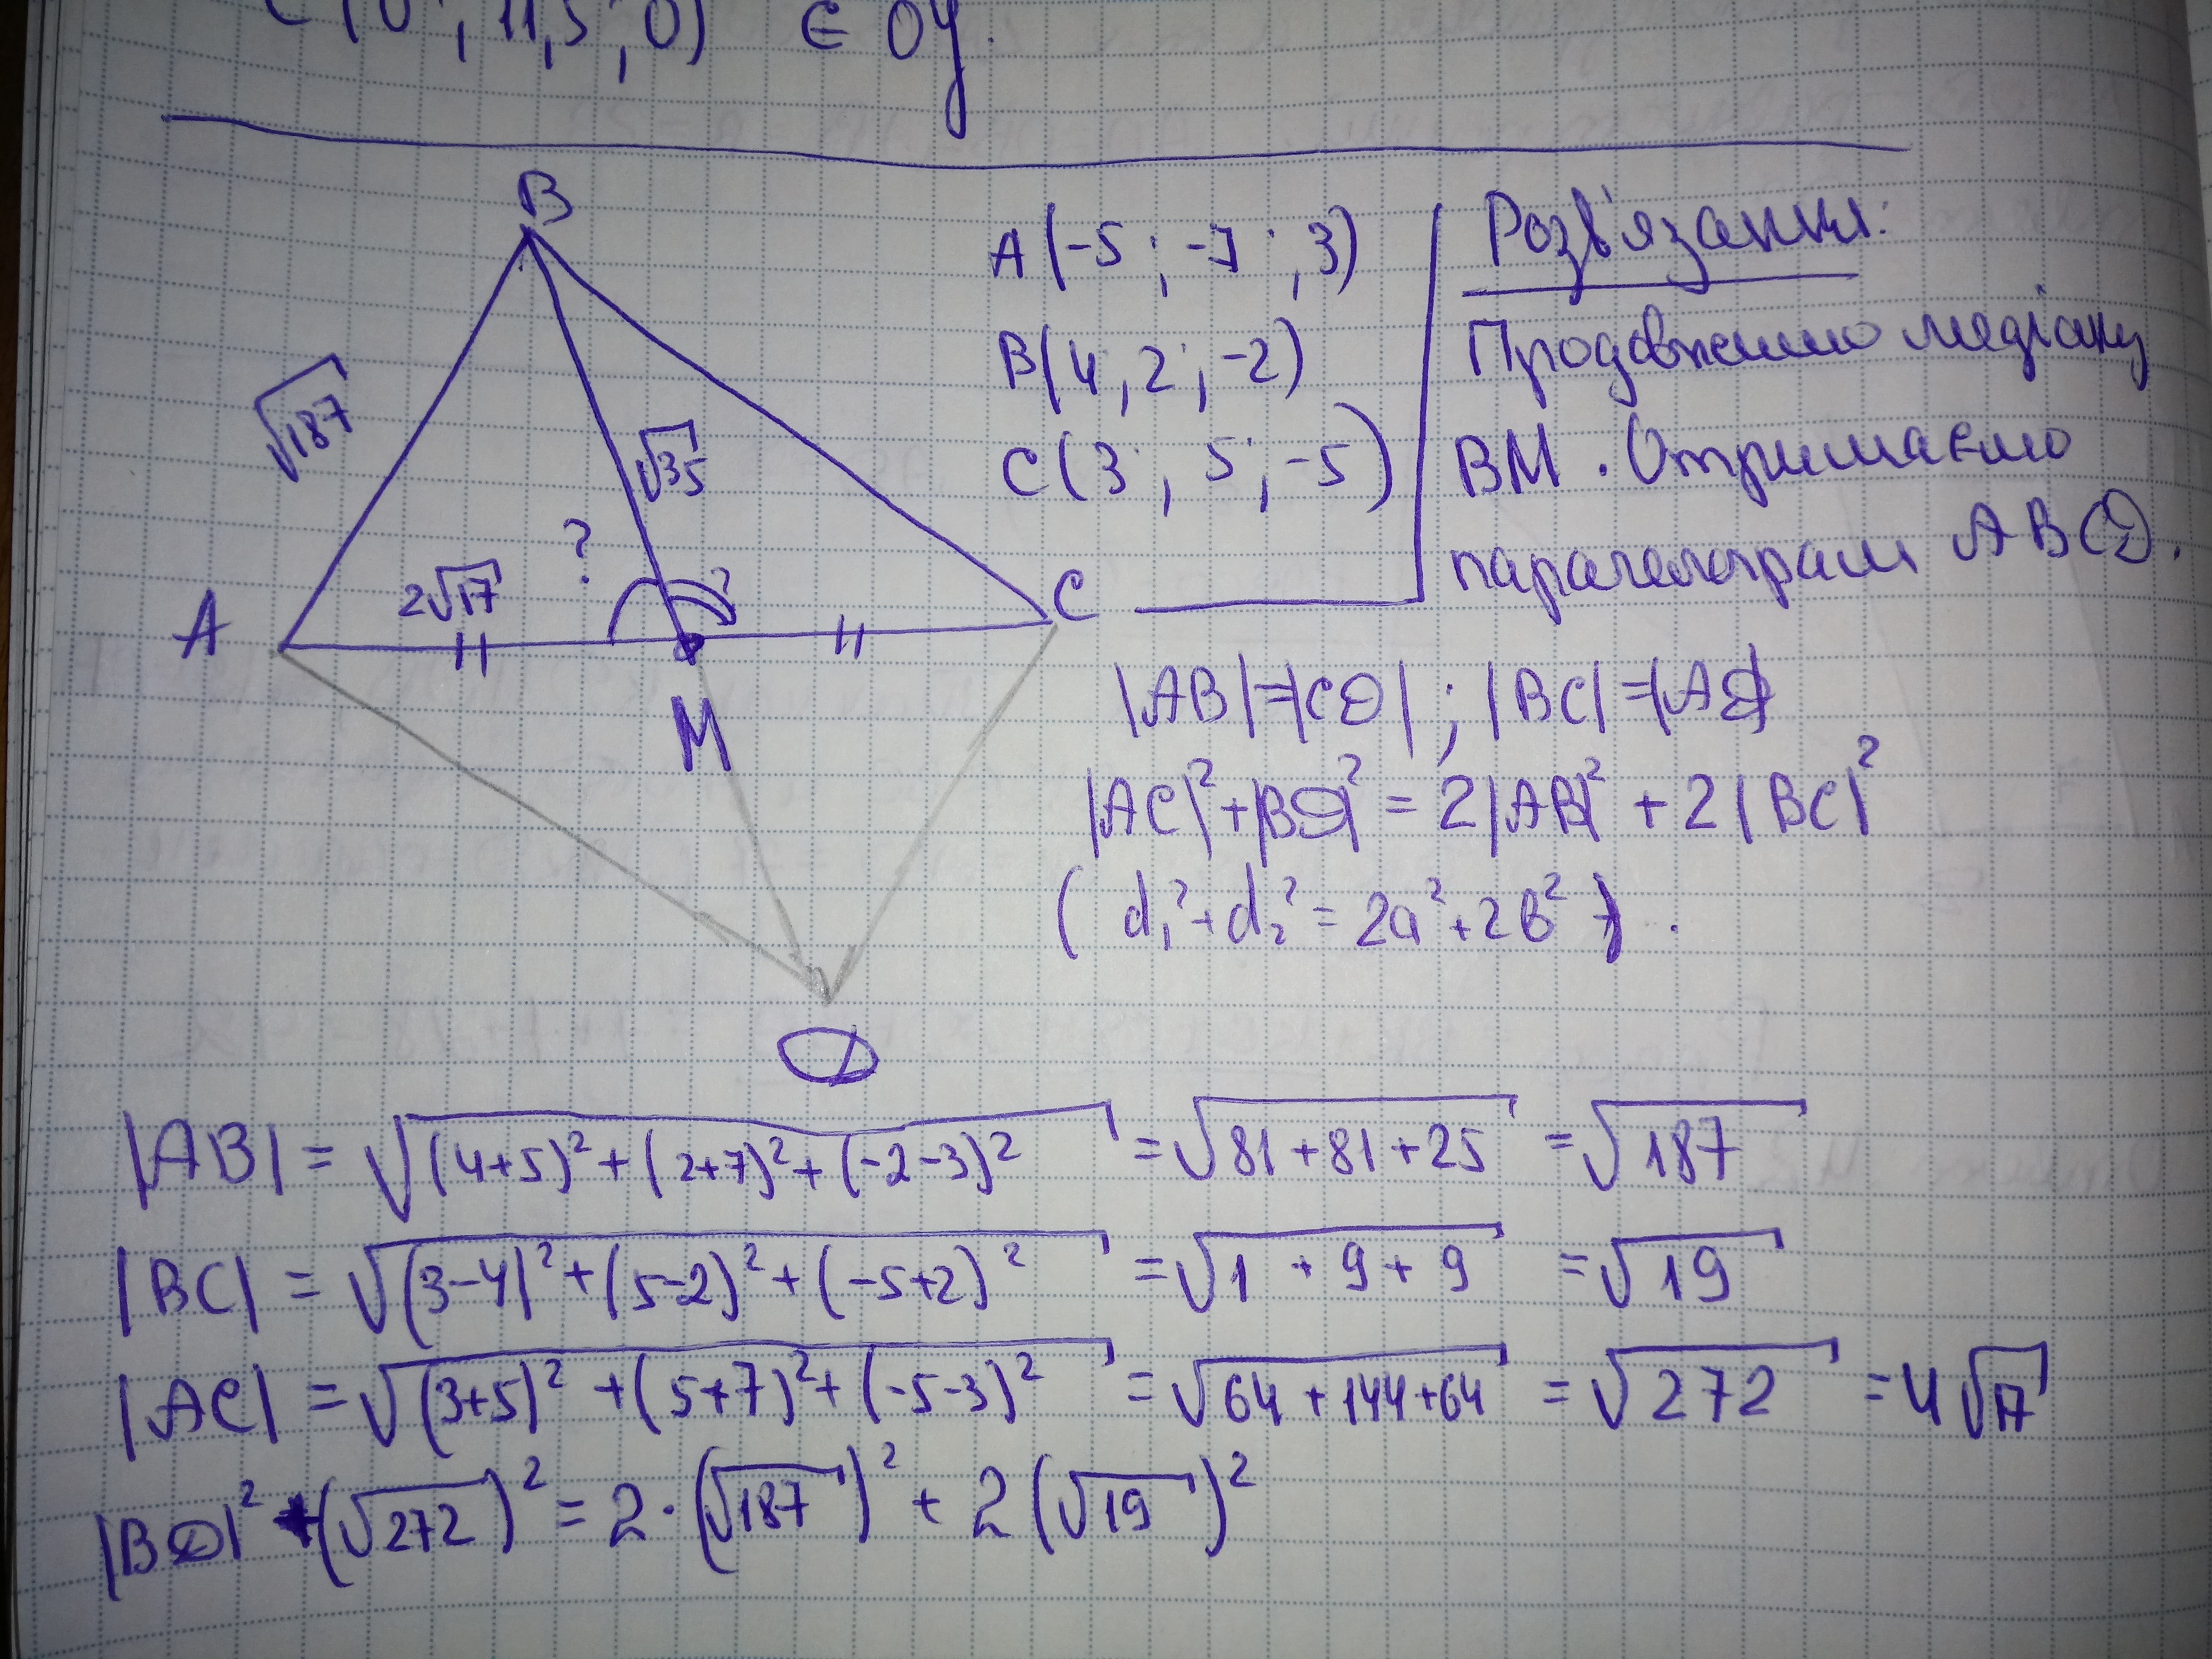 C (0 ; 11,5 ; 0) ∈ OY.
B
A (-5 ; -7 ; 3)
B(4 ; 2 ; -2)
C (3 ; 5 ; -5)
Розв'язання:
Продовжимо медіану
BM. Отримаємо
паралелограм ABCD.
√187
√35
?
2√17
?
A
C
M
D
|AB|=|CD| ; |BC|=|AD|
|AC|²+|BD|² = 2|AB|² + 2|BC|²
( d₁²+d₂² = 2a²+2b² ) .
|AB| = √(4+5)²+(2+7)²+(-2-3)² = √81+81+25 = √187
|BC| = √(3-4)²+(5-2)²+(-5+2)² = √1 + 9 + 9 = √19
|AC| = √(3+5)² +(5+7)²+(-5-3)² = √64+144+64 = √272 = 4√17
|BD|² +(√272)² = 2·(√187)² + 2(√19)²